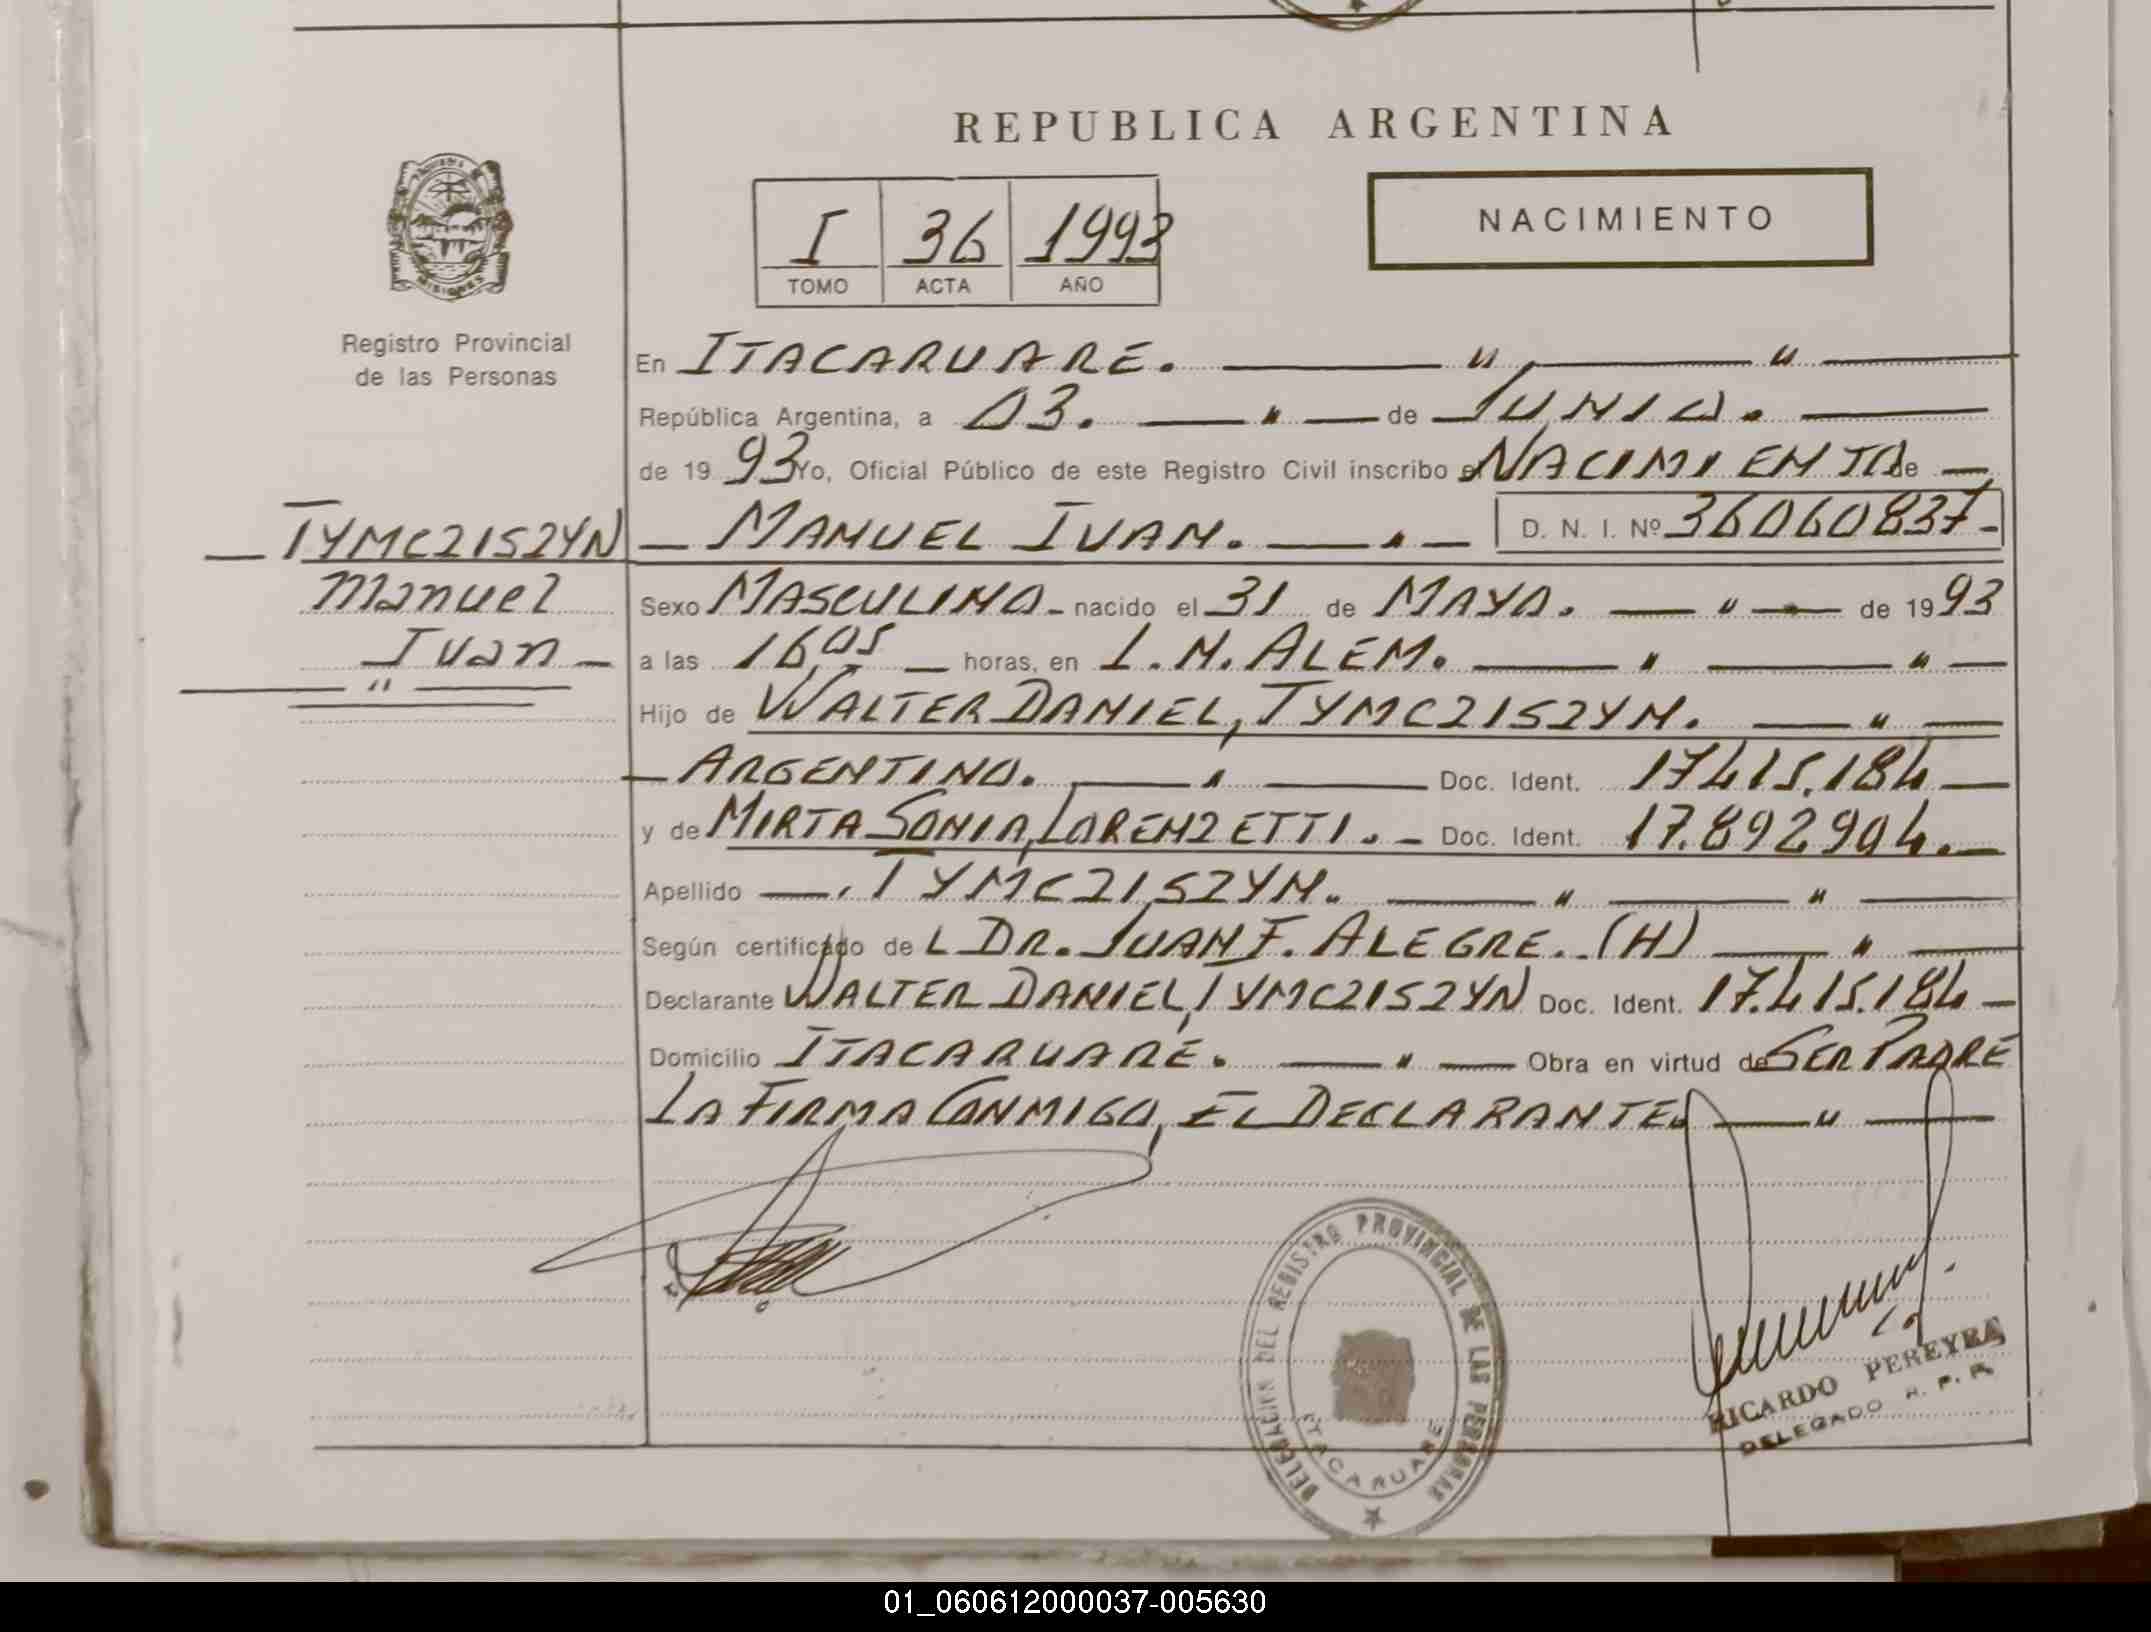 REPUBLICA ARGENTINA
NACIMIENTO
I 36 1993
TOMO ACTA AÑO
MISIONES
Registro Provincial
de las Personas
En ITACARUARE. " "
República Argentina, a 03. " de JUNIO.
de 1993 Yo, Oficial Público de este Registro Civil inscribo el NACIMIENTO de
TYMCZISZYN
Manuel
Ivan
"
MANUEL IVAN. " D. N. I. Nº 36060837
Sexo MASCULINO nacido el 31 de MAYO. " de 1993
a las 16,05 horas, en L.N. ALEM. " "
Hijo de WALTER DANIEL, TYMCZISZYN. "
ARGENTINO. " Doc. Ident. 17.415.184
y de MIRTA SONIA, LORENZETTI. Doc. Ident. 17.892904.
Apellido TYMCZISZYN. " "
Según certificado de L DR. JUAN F. ALEGRE. (H) "
Declarante WALTER DANIEL, TYMCZISZYN Doc. Ident. 17.415.184
Domicilio ITACARUARE. " Obra en virtud de SER PADRE
LA FIRMA CONMIGO, EL DECLARANTE. "
DELEGACION DEL REGISTRO PROVINCIAL DE LAS PERSONAS
ITACARUARE
RICARDO PEREYRA
DELEGADO R. P. P.
01_060612000037-005630